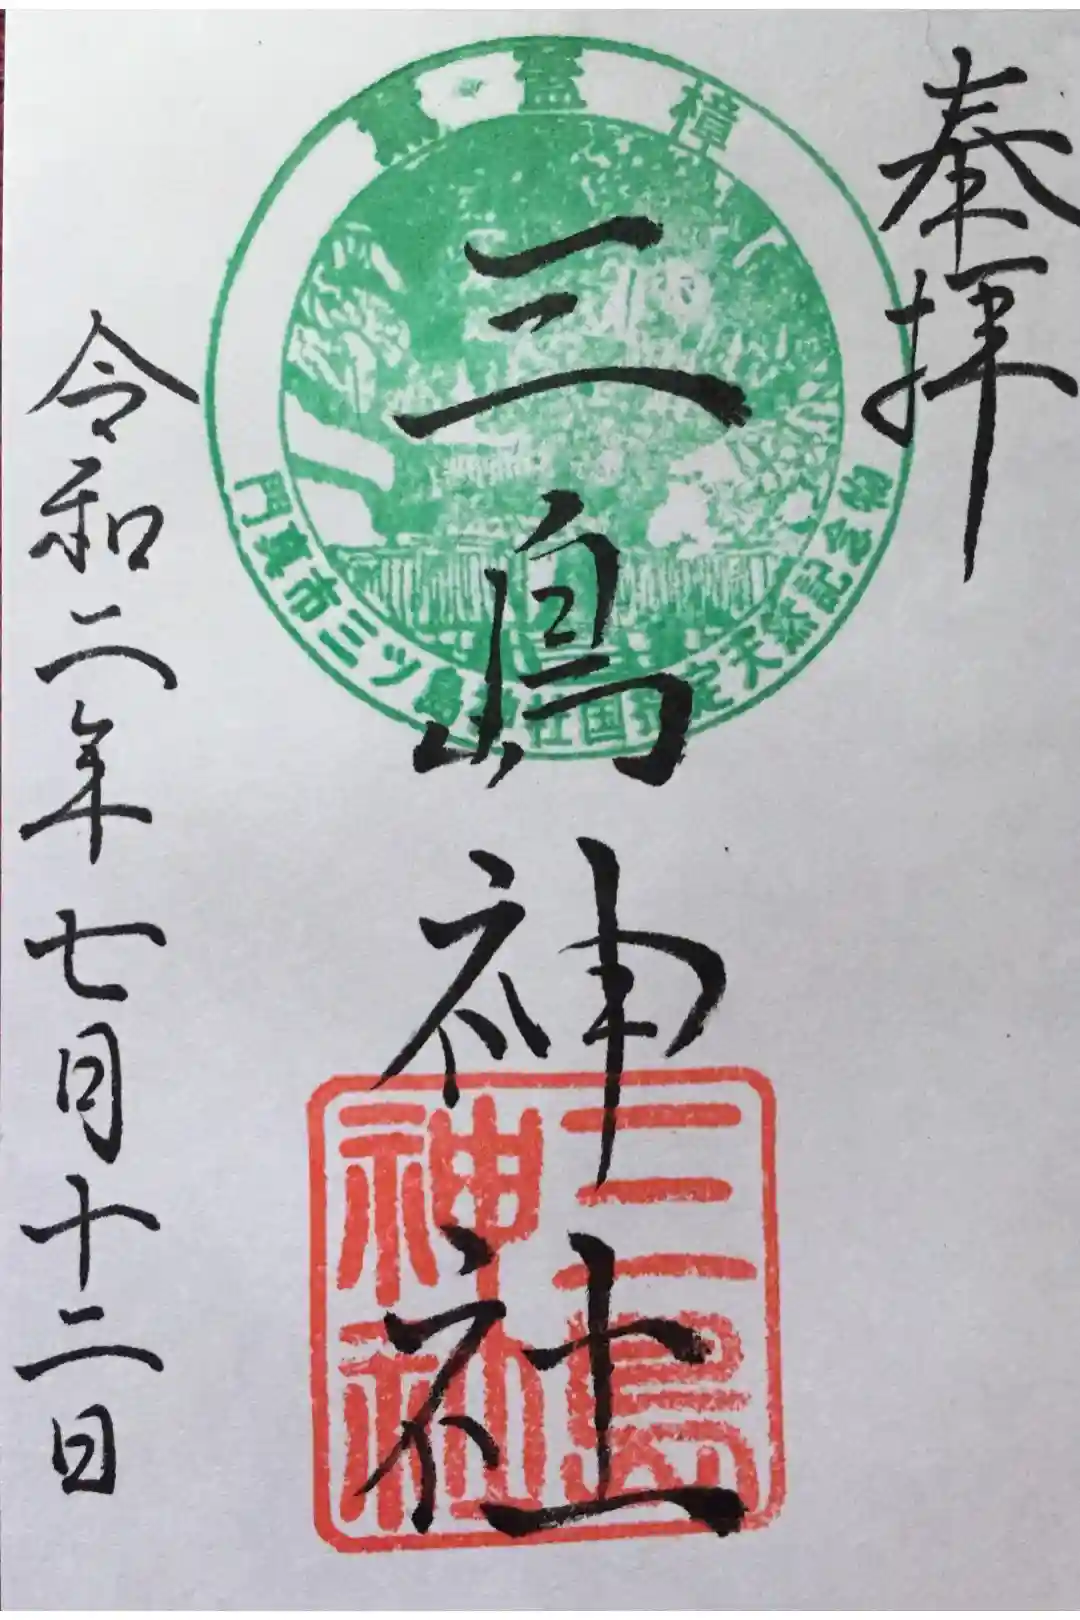 奉拝
樟蓋薫
門真市三ツ島神社国指定天然記念物
三嶋神社
三島神社
令和二年七月十二日